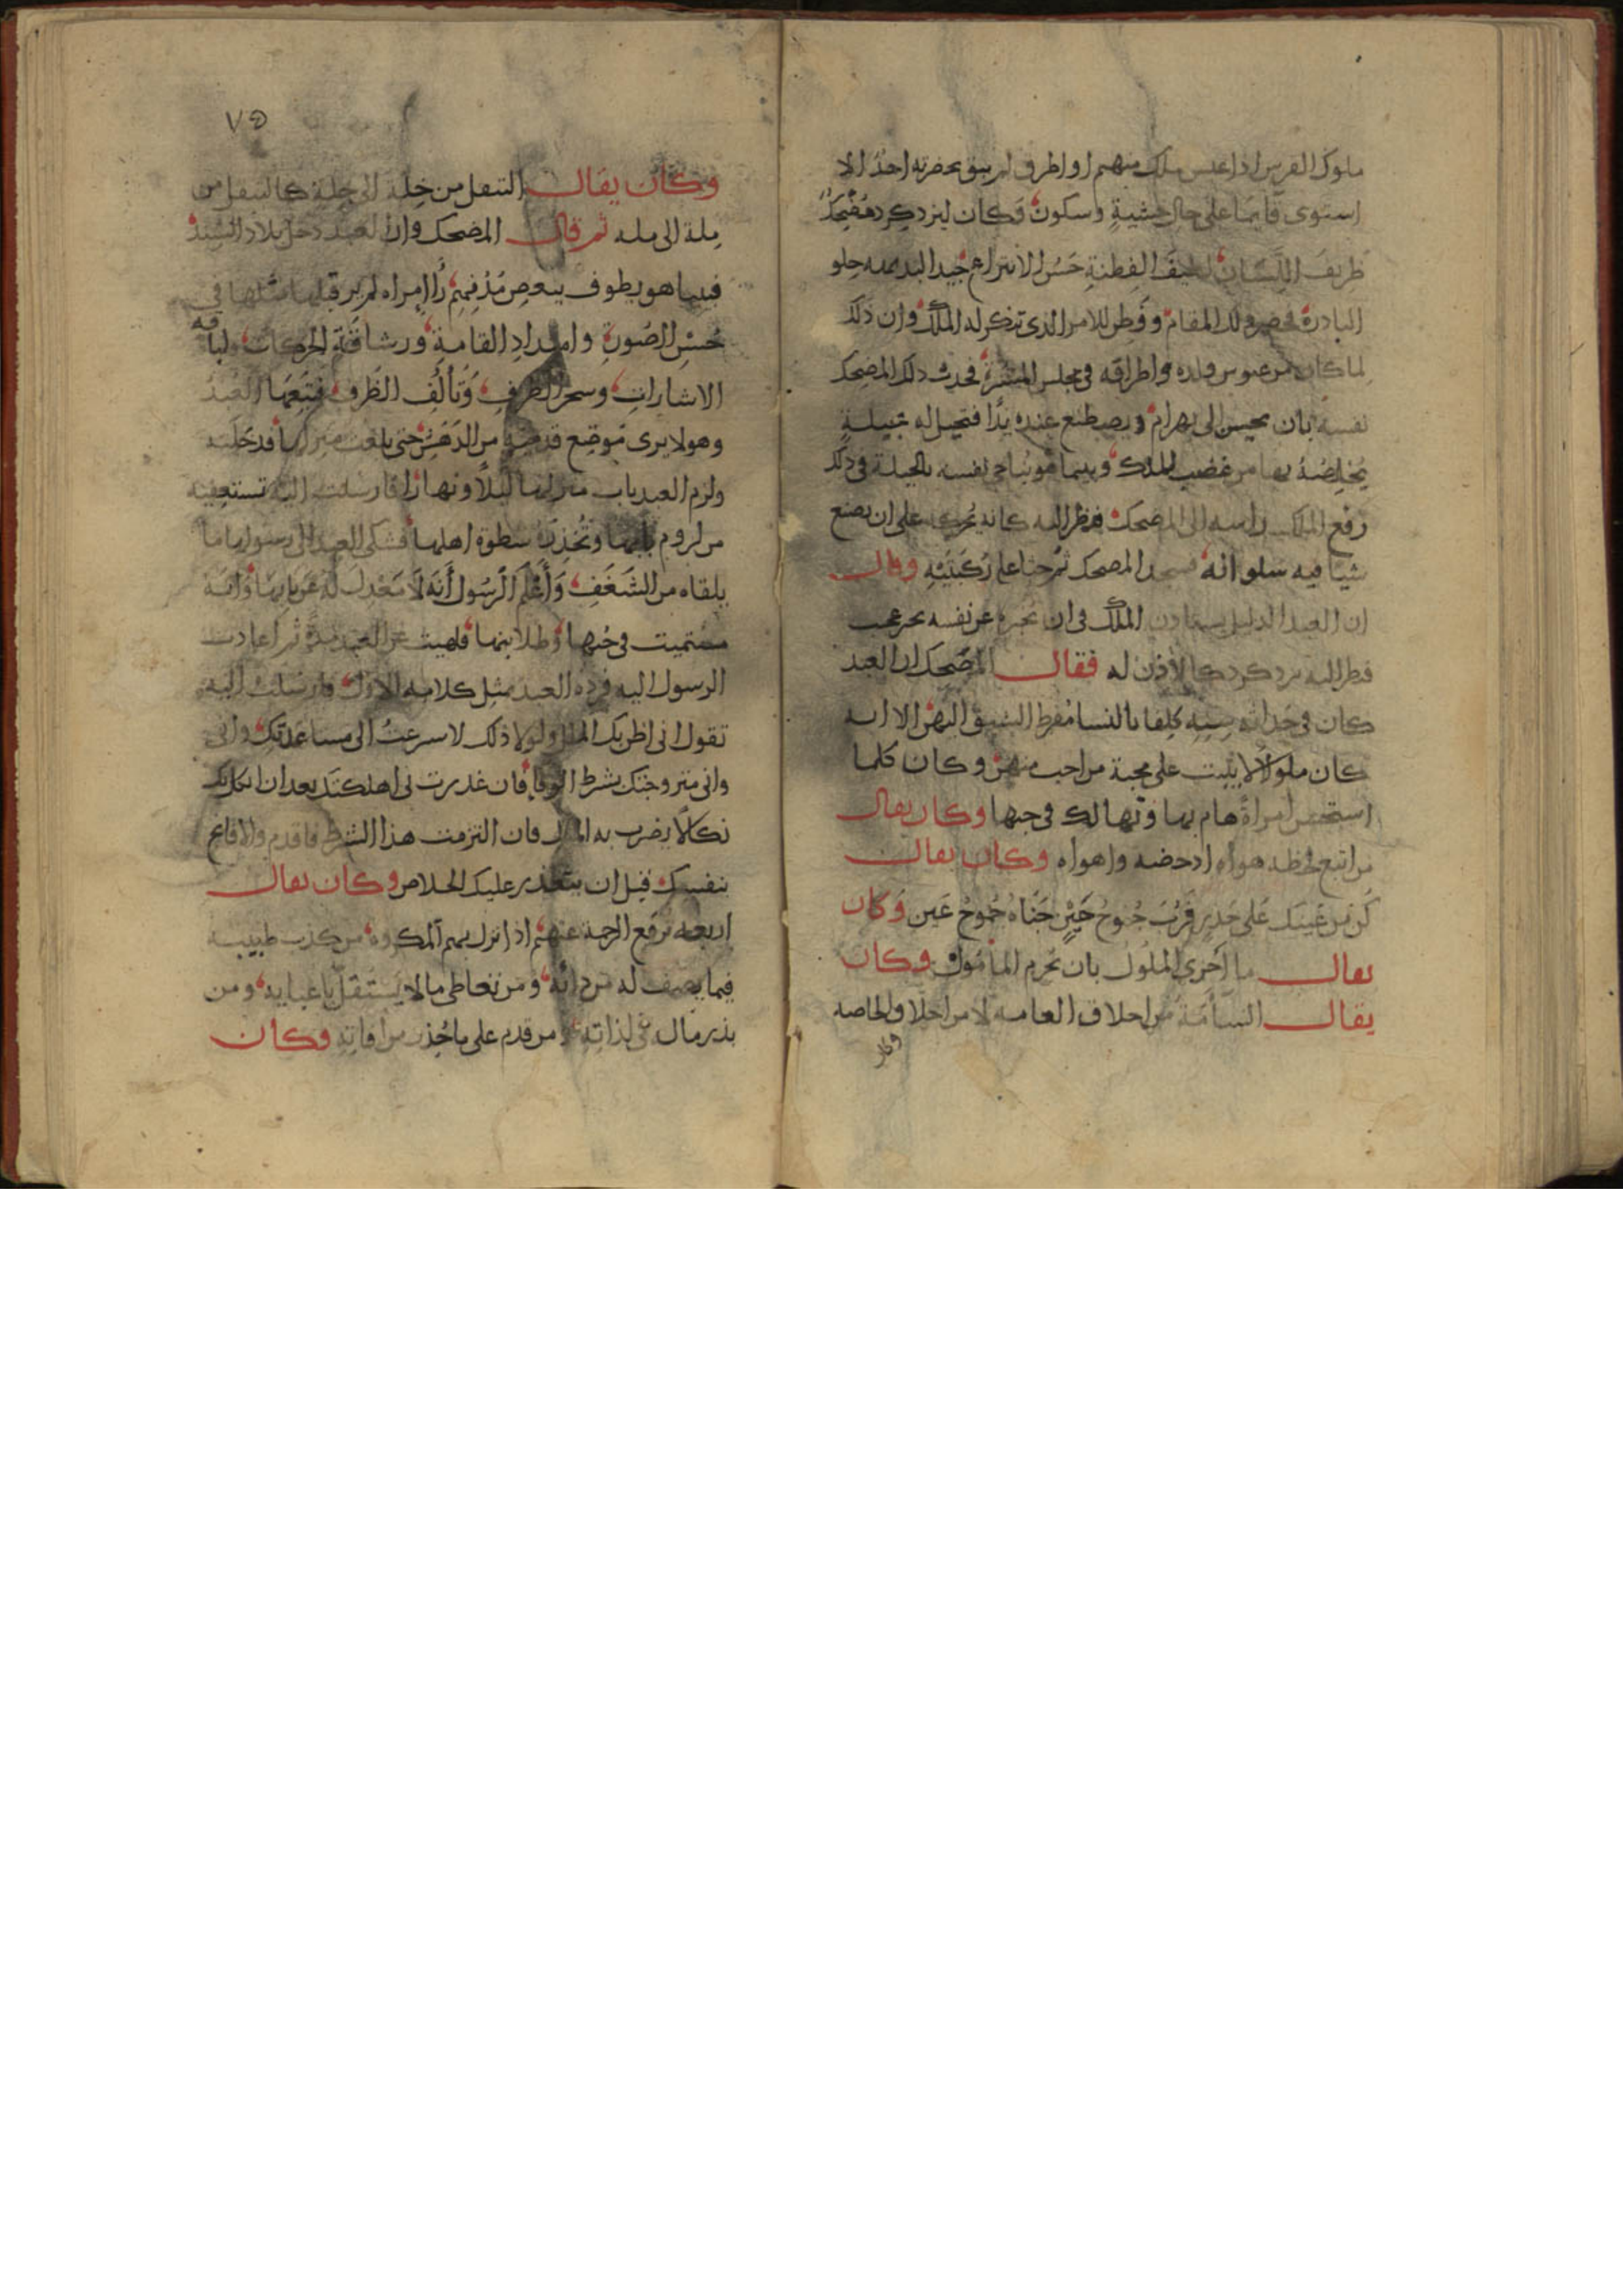 ملوك الفرس اذا عبس ملك منهم او اطرق لم يبق بحضرته احد الا
استوى قايما على حال خشية وسكون وكان ليزدكرد مضحك
ظريف اللسان لطيف الفطنة حسن الاختراع جيد البديهه حلو
البادرة فحضر ذلك المقام وفطن للامر الذي تنكر له الملك وان ذلك
لما كان من عبوس ولده واطراقه في مجلس المسرة فحدث ذلك المضحك
نفسه بان يحسن الى بهرام ويصطنع عنده يدا فتحيل له بحيلة
يخلصه بها من غضب الملك وبينما هو يناجي نفسه بالحيلة في ذلك
رفع الملك راسه الى المضحك فنظر اليه كانه يحركه على ان يصنع
شيا فيه سلوانه فسجد المضحك ثم جثا على ركبتيه وقال
ان العبد الذليل يستاذن الملك في ان يخبره عن نفسه بخبر عجب
فنظر اليه يزدكرد كالاذن له فقال المضحك ان العبد
كان في حداثة سنه كلفا بالنسا مفرط الشبق اليهن الا انه
كان ملولا لا يثبت على محبة من احب منهن وكان كلما
استحسن امراة هام بها وتهالك في حبها وكان يقال
من اتبع لحظه هواه ادحضه واهواه وكان يقال
كن من عينك على حذر فرب جنوح حين جناه جموح عين وكان
يقال ما احرى الملول بان يحرم المامول وكان
يقال السآمة من اخلاق العامه لا من اخلاق الخاصه
وكان
٧٥
وكان يقال التنقل من خلة الى خلة كالتنقل من
ملة الى مله ثم قال المضحك وان العبد دخل بلاد السند
فبينما هو يطوف ببعض مدنهم رأا امراه لم ير قبلها مثلها في
حسن الصورة وامتداد القامة ورشاقة الحركات ولباقه
الاشارات وسحر الطرف وتألف الظرف فتبعها العبد
وهو لا يرى موضع قدمه من الدهش حتى بلغت منزلها فدخلته
ولزم العبد باب منزلها ليلا ونهارا فارسلت اليه تستعفيه
من لزوم بابها وتحذره سطوة اهلها فشكى العبد الى رسولها ما
يلقاه من الشغف واعلم الرسول انه لا معدل له عن بابها وانه
مستميت في حبها وطلابها فلهيت عن العبد مدة ثم اعادت
الرسول اليه فرده العبد بمثل كلامه الاول فارسلت اليه
تقول اني اظن بك الملل ولولا ذلك لاسرعت الى مساعدتك واني
واني متزوجتك بشرط الوفا فان غدرت بي اهلكتك بعد ان انكل بك
نكالا يضرب به المثل فان التزمت هذا الشرط فاقدم والا فانج
بنفسك قبل ان يتعذر عليك الخلاص وكان يقال
اربعه ترفع الرحمة عنهم اذا نزل بهم المكروه من كذب طبيبه
فيما يصف له من دائه ومن تعاطى ما لا يستقل باعبايه ومن
بذر مال في لذاته ومن قدم على ما حذر من افاته وكان